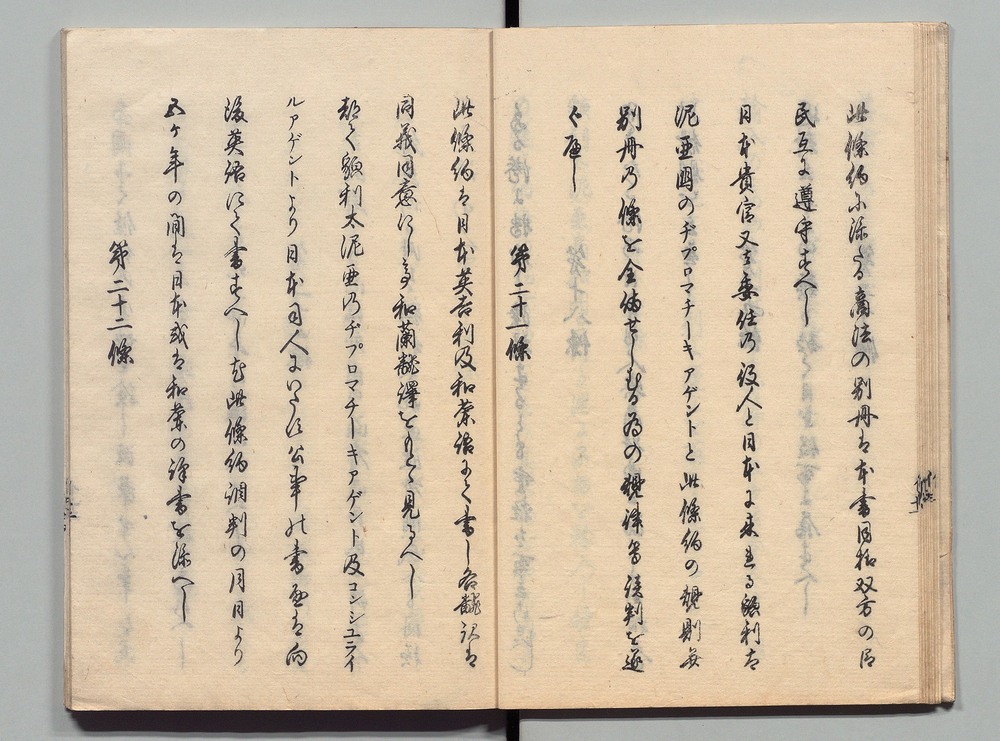 此條約に添たる商法の別冊は本書同様双方の臣
民互に遵守すへし
日本貴官又は委任の役人と日本に来れる貌利太
泥亜国のヂプロマチーキアゲントと此條約の規則并
別冊の條を全備せしむる為の規律等談判を遂
くへし
第二十一條
此條約は日本英吉利及和蘭語にて書し各飜訳は
同義同意にして和蘭飜譯をもて見るへし
都て貌利太泥亜のヂプロマチーキアゲント及コンシユライ
ルアゲントより日本司人にいたす公事の書通は向
後英語にて書すへし尤此條約調判の月日より
五ケ年の間は日本或は和蘭の譯書を添へし
第二十二條